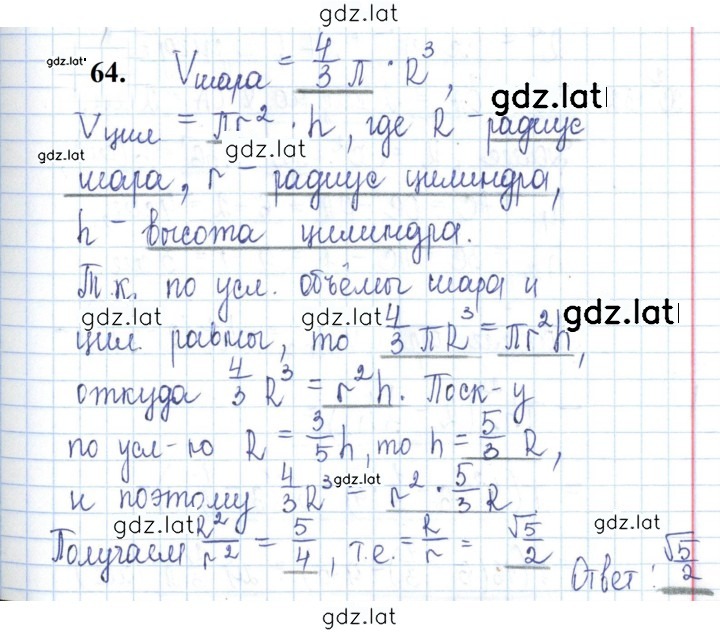 gdz.lat
gdz.lat
64. Vшара = 4/3 π · R³,
gdz.lat
Vцил = πr² · h, где R - радиус
gdz.lat gdz.lat
шара, r - радиус цилиндра,
h - высота цилиндра.
Т.к. по усл. объёмы шара и
gdz.lat gdz.lat gdz.lat
цил равны, то 4/3 πR³ = πr²h,
откуда 4/3 R³ = r²h. Поск-у
по усл-ю R = 3/5 h, то h = 5/3 R,
gdz.lat
и поэтому 4/3 R³ = r² · 5/3 R
gdz.lat gdz.lat
Получаем R²/r² = 5/4, т.е. = R/r = √5/2
Ответ: √5/2
gdz.lat